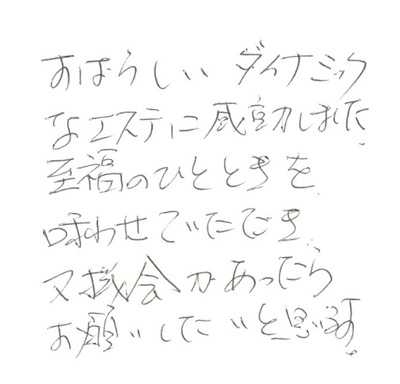 すばらしい ダイナミック
なエステに感動しました。
至福のひとときを
味わせていただき、
又機会があったら
お願いしたいと思います。